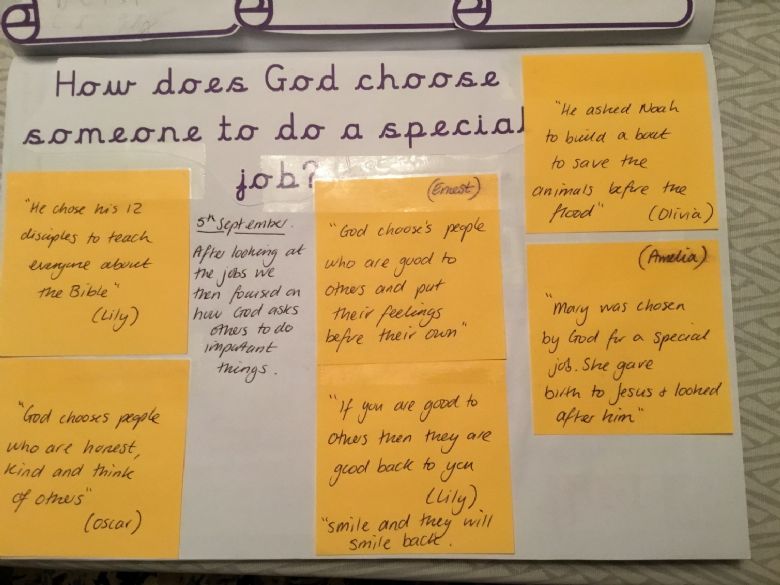 How does God choose
someone to do a special
job?
"He chose his 12
disciples to teach
everyone about
the Bible"
(Lily)
"God chooses people
who are honest,
kind and think
of others"
(Oscar)
5th September.
After looking at
the jobs we
then focused on
how God asks
others to do
important
things.
(Ernest)
"God choose's people
who are good to
others and put
their feelings
before their own"
"If you are good to
others then they are
good back to you
(Lily)
"smile and they will
smile back.
"He asked Noah
to build a boat
to save the
animals before the
flood" (Olivia)
(Amelia)
"Mary was chosen
by God for a special
job. She gave
birth to Jesus + looked
after him"